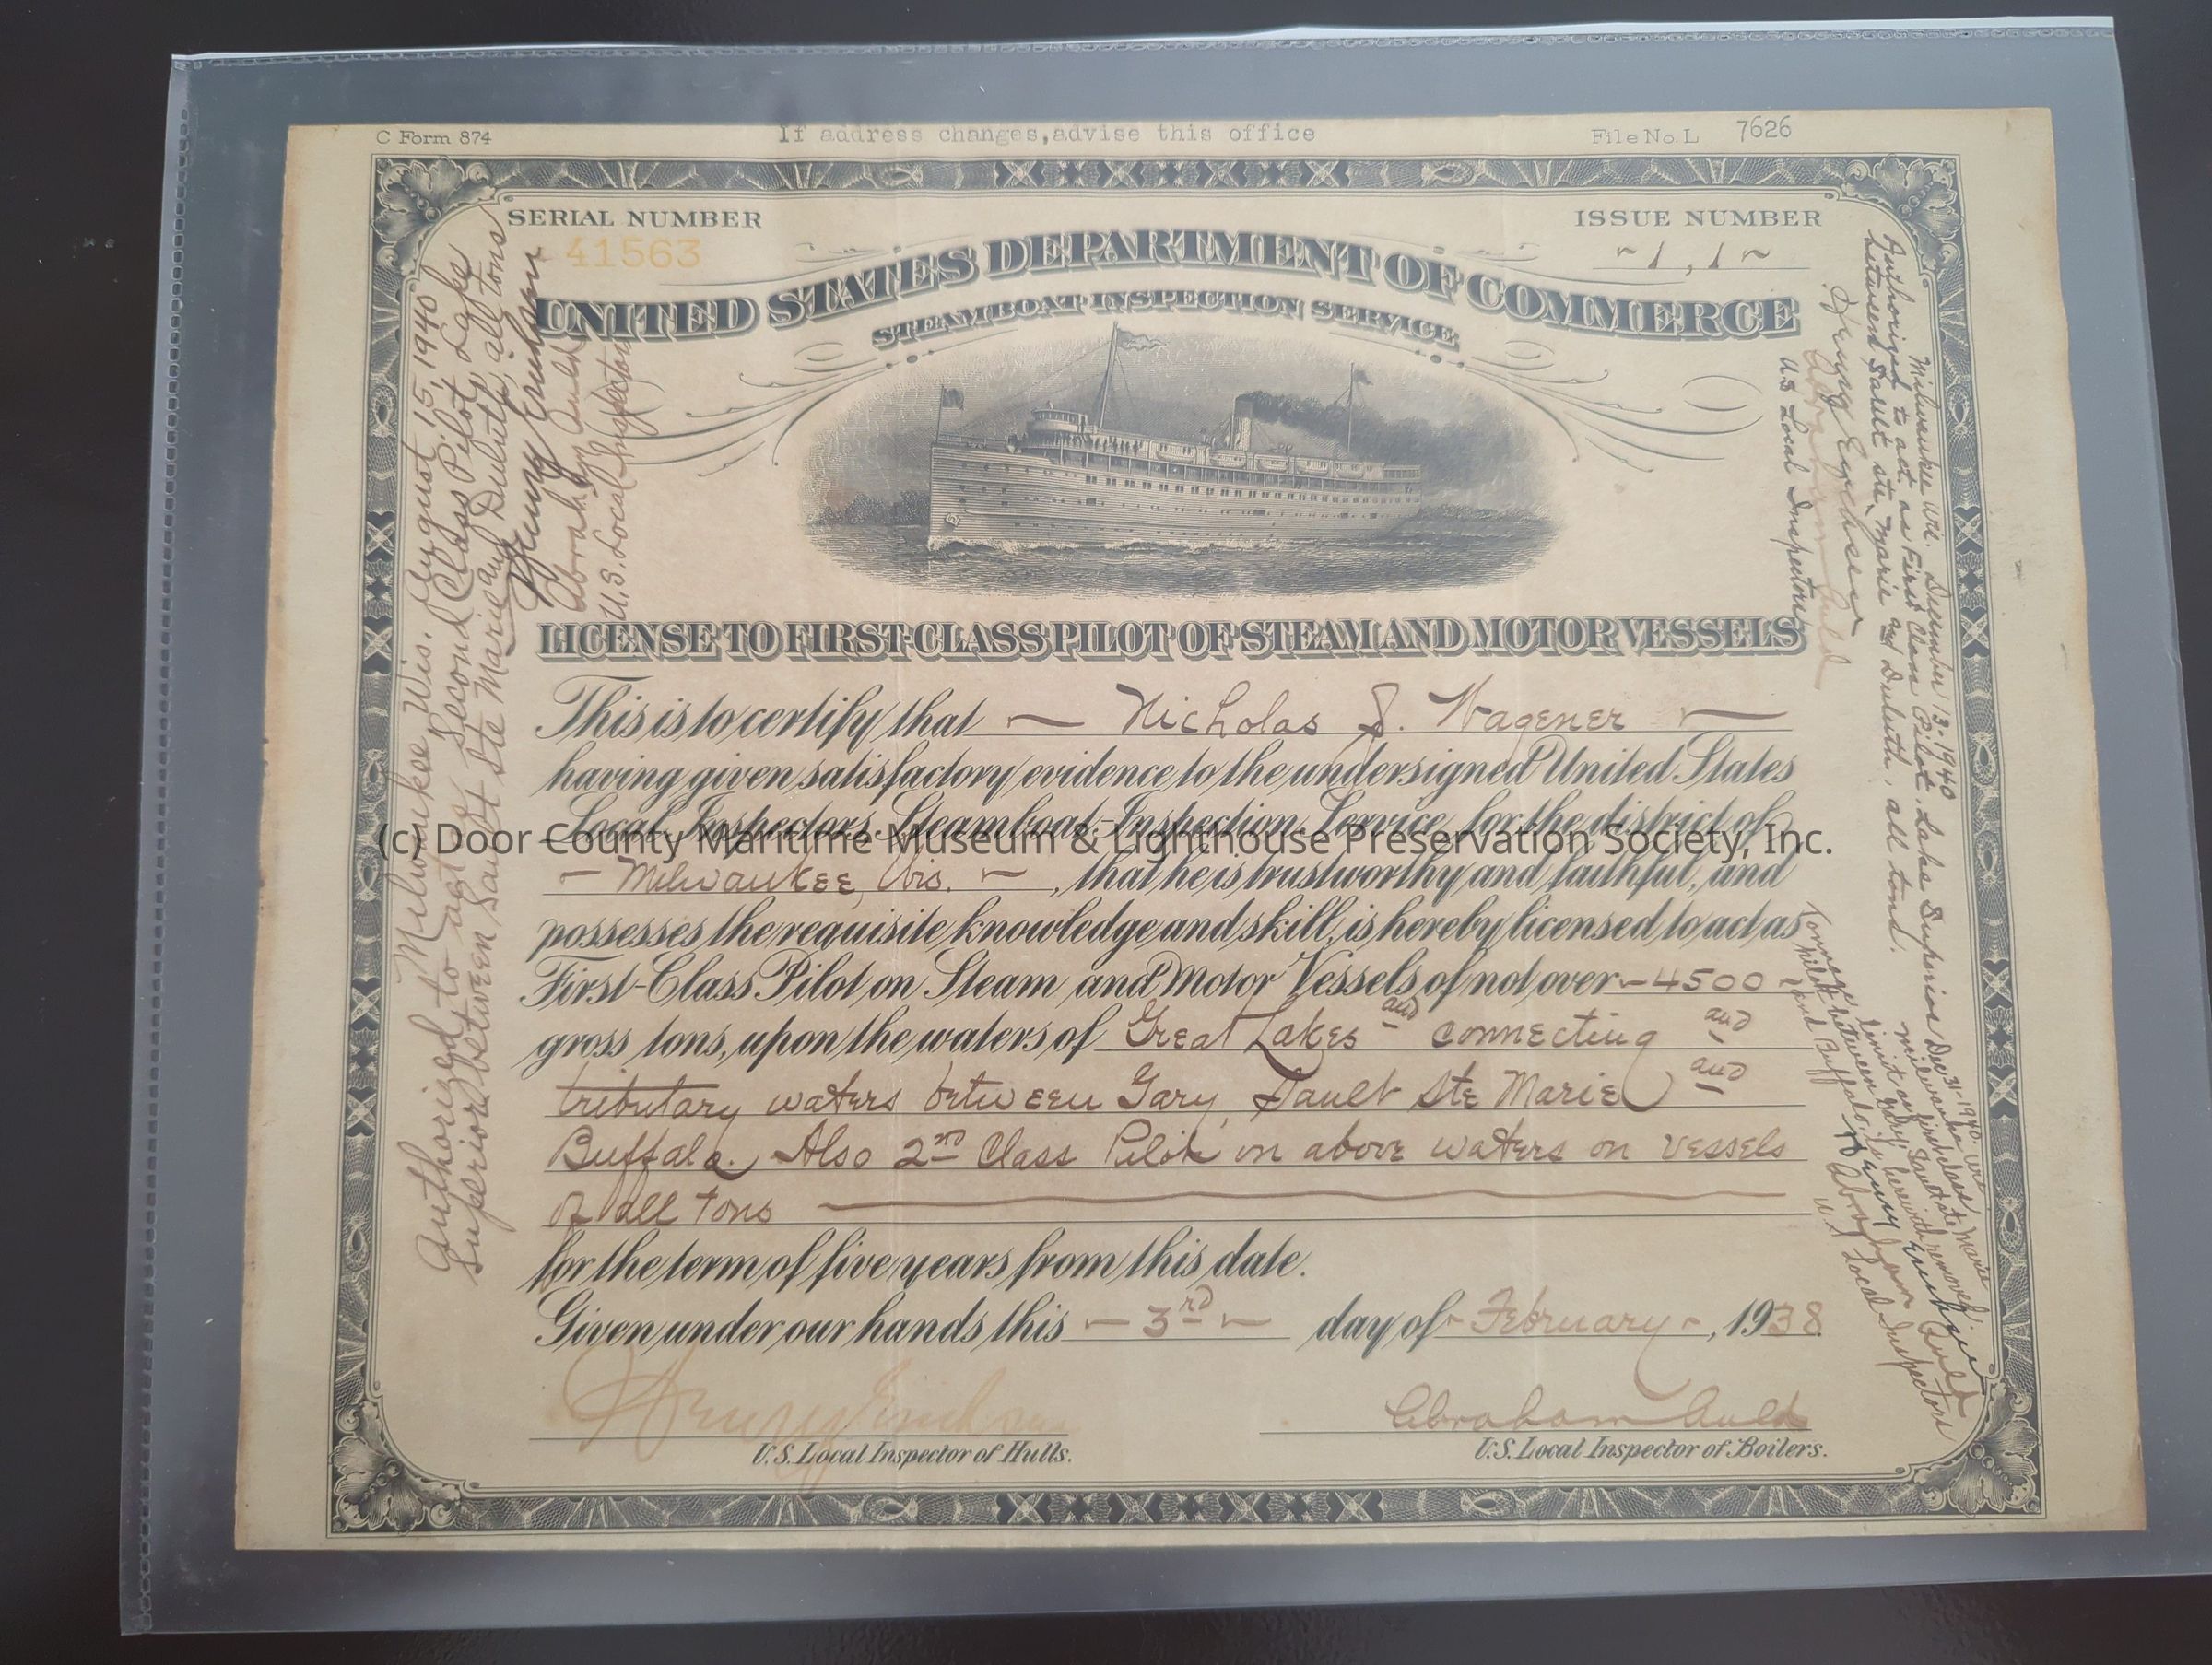 C Form 874
If address changes,advise this office
File No. L 7626
SERIAL NUMBER
41563
ISSUE NUMBER
- 1, 1 -
UNITED STATES DEPARTMENT OF COMMERCE
STEAMBOAT INSPECTION SERVICE
LICENSE TO FIRST-CLASS PILOT OF STEAM AND MOTOR VESSELS
This is to certify that - Nicholas J. Wagener -
having given satisfactory evidence to the undersigned United States
Local Inspectors, Steamboat-Inspection Service, for the district of
(c) Door County Maritime Museum & Lighthouse Preservation Society, Inc.
- Milwaukee, Wis. -, that he is trustworthy and faithful, and
possesses the requisite knowledge and skill, is hereby licensed to act as
First-Class Pilot on Steam and Motor Vessels of not over - 4500 -
gross tons, upon the waters of Great Lakes and connecting and
tributary waters between Gary, Sault Ste Marie and
Buffalo. Also 2nd Class Pilot on above waters on vessels
of all tons
for the term of five years from this date.
Given under our hands this - 3rd - day of - February -, 1938
Abraham Auld
U.S. Local Inspector of Hulls.
U.S. Local Inspector of Boilers.
Milwaukee Wis. August 15, 1940
Authorized to act as Second Class Pilot, Lake
Superior between Sault Ste Marie and Duluth, all tons
Henry Erichsen
Abraham Auld
U.S. Local Inspectors
Milwaukee Wis. December 13-1940
Authorized to act as First Class Pilot, Lake Superior
between Sault Ste, Marie and Duluth, all tons.
Henry Erichsen
Abraham Auld
U.S Local Inspectors
Milwaukee, Wis Dec 31-1940.
Tonnage limit as first class
Pilot between Gary, Sault Ste Marie
and Buffalo is herewith removed.
Henry Erichsen
Abraham Auld
U.S Local Inspectors